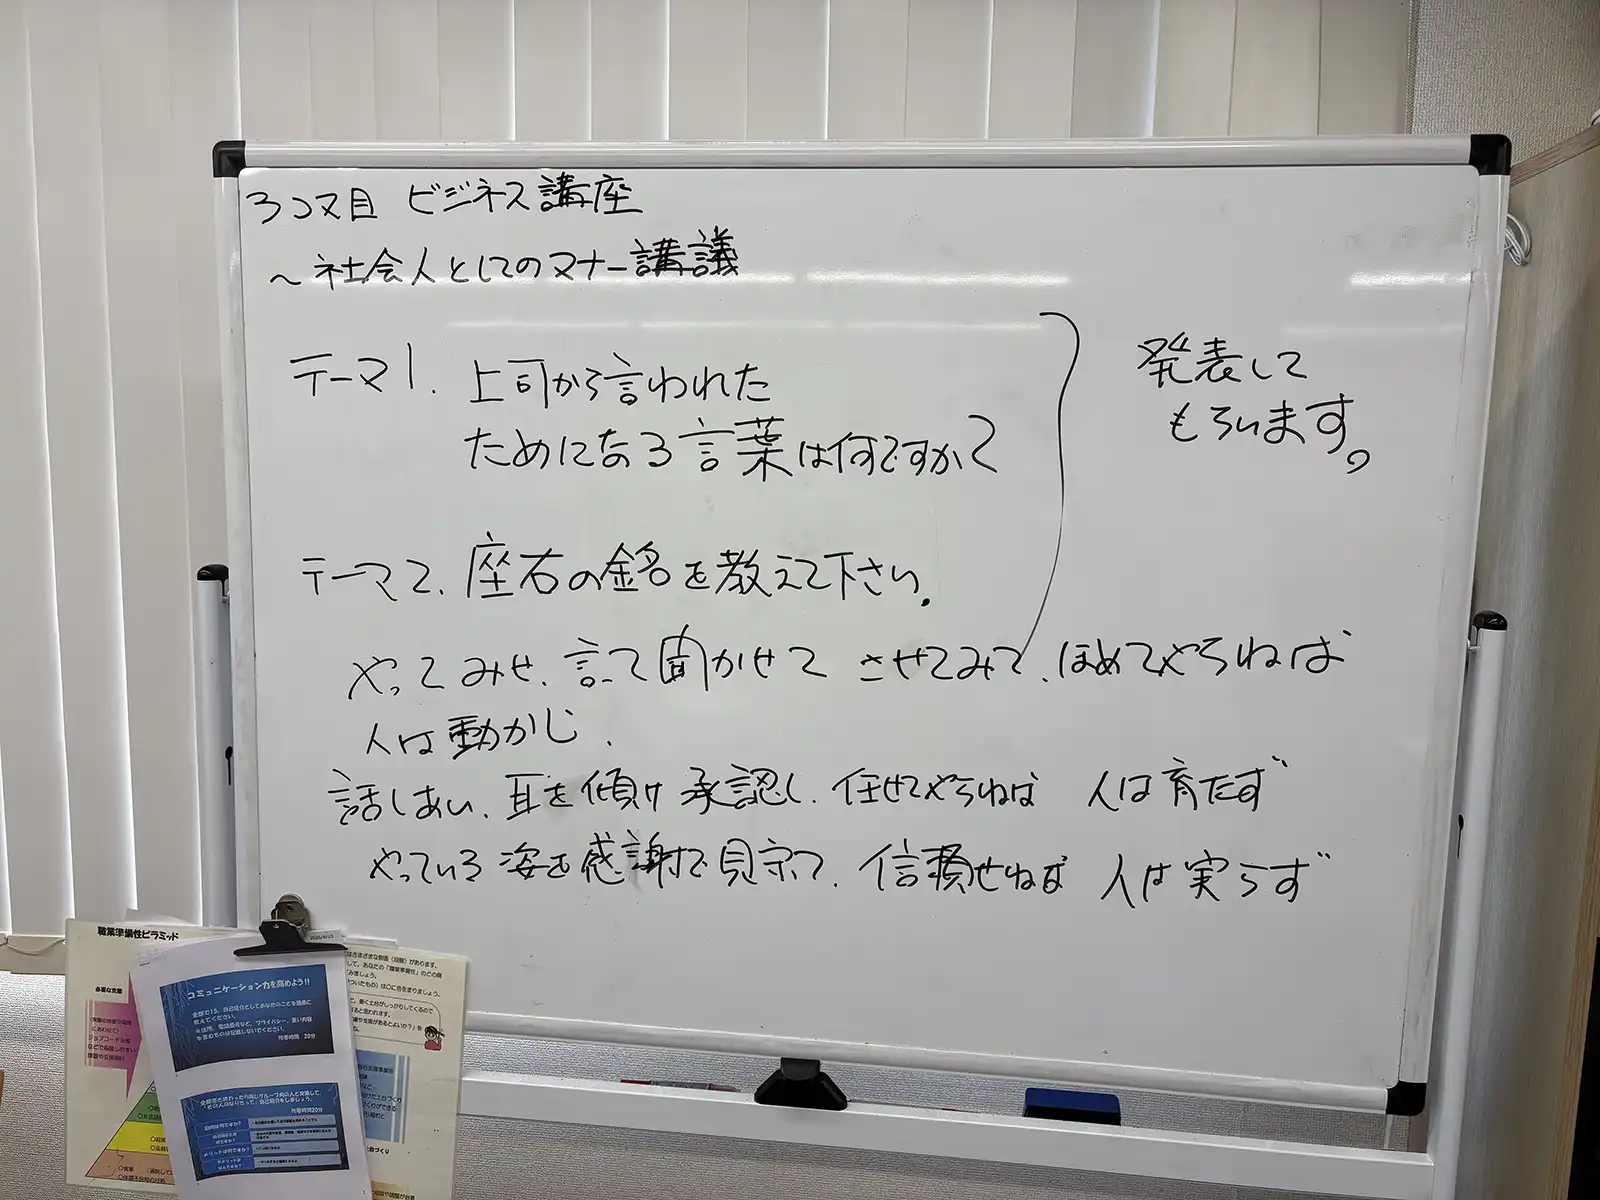 3コマ目 ビジネス講座
～社会人としてのマナー講議
テーマ1. 上司から言われた
ためになる言葉は何ですか?
発表して
もらいます。
テーマ2. 座右の銘を教えて下さい.
やってみせ、言って聞かせて させてみて、ほめてやらねば
人は動かじ.
話しあい、耳を傾け 承認し、任せてやらねば 人は育たず
やっている 姿を感謝で見守って、信頼せねば 人は実らず
職業準備性ピラミッド
必要な支援
コミュニケーション力を高めよう!!
所要時間 20分
所要時間20分
目的は何ですか?
メリットは何ですか?